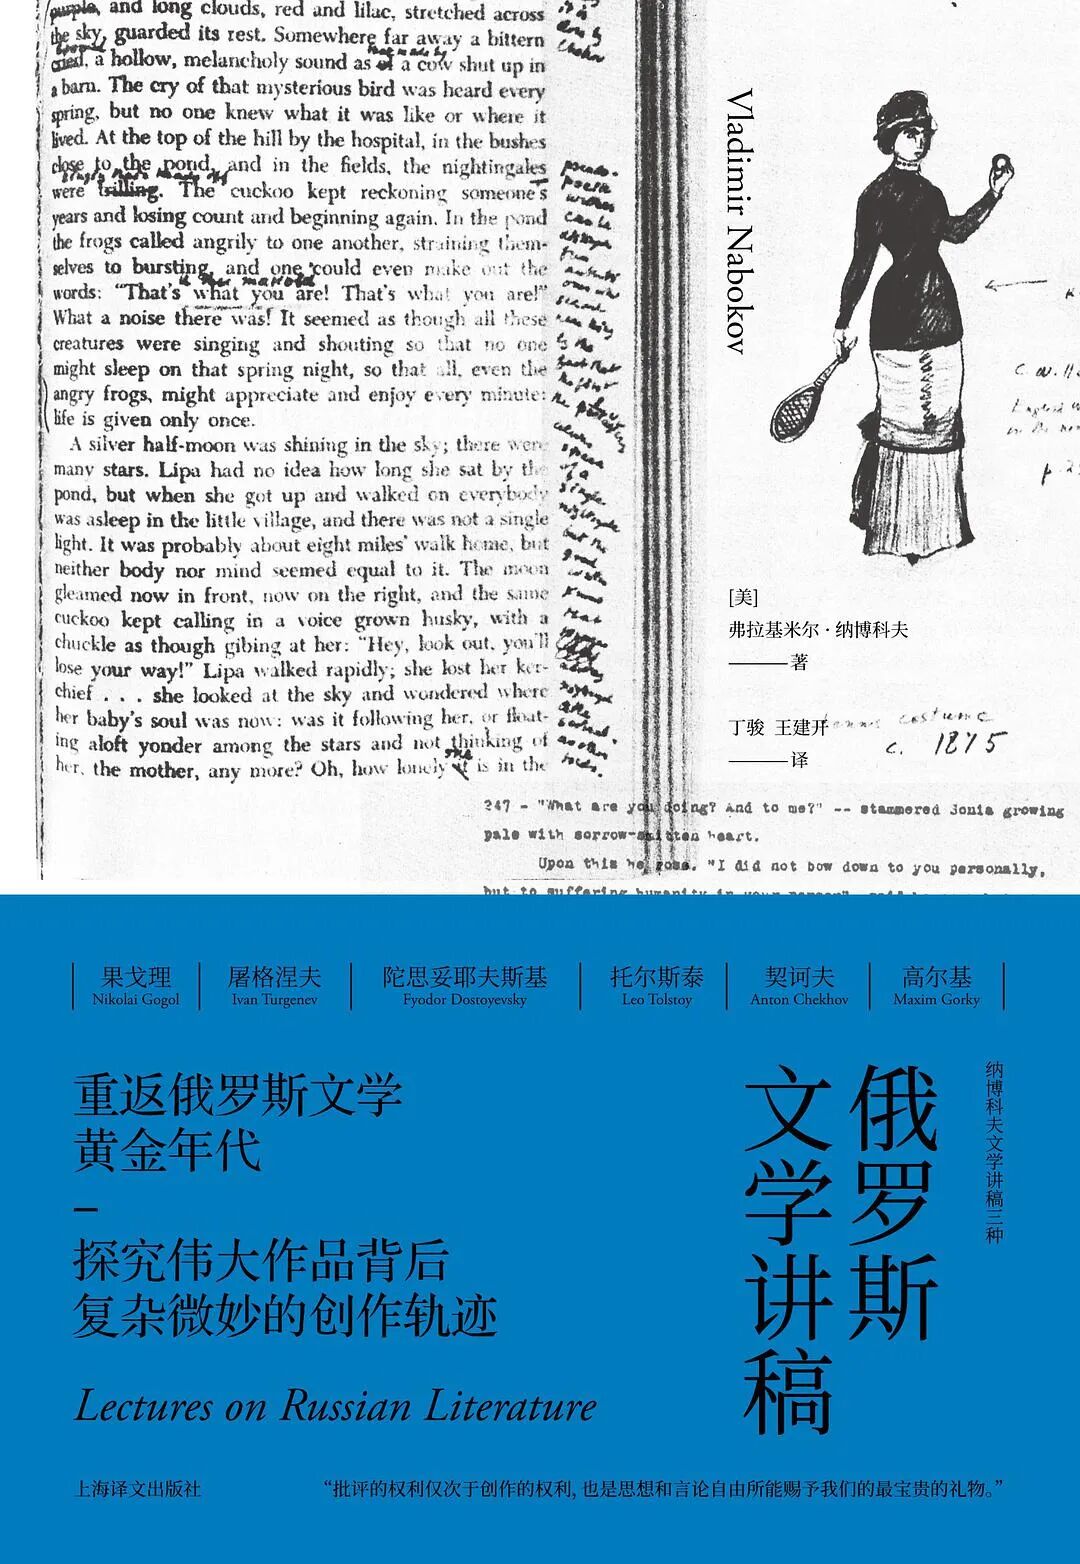 purple, and long clouds, red and lilac, stretched across
the sky, guarded its rest. Somewhere far away a bittern
cried, a hollow, melancholy sound as of a cow shut up in
a barn. The cry of that mysterious bird was heard every
spring, but no one knew what it was like or where it
lived. At the top of the hill by the hospital, in the bushes
close to the pond, and in the fields, the nightingales
were trilling. The cuckoo kept reckoning someone's
years and losing count and beginning again. In the pond
the frogs called angrily to one another, straining them-
selves to bursting, and one could even make out the
words: "That's what you are! That's what you are!"
What a noise there was! It seemed as though all these
creatures were singing and shouting so that no one
might sleep on that spring night, so that all, even the
angry frogs, might appreciate and enjoy every minute:
life is given only once.
A silver half-moon was shining in the sky; there were
many stars. Lipa had no idea how long she sat by the
pond, but when she got up and walked on everybody
was asleep in the little village, and there was not a single
light. It was probably about eight miles' walk home, but
neither body nor mind seemed equal to it. The moon
gleamed now in front, now on the right, and the same
cuckoo kept calling in a voice grown husky, with a
chuckle as though gibing at her: "Hey, look out, you'll
lose your way!" Lipa walked rapidly; she lost her ker-
chief . . . she looked at the sky and wondered where
her baby's soul was now: was it following her, or float-
ing aloft yonder among the stars and not thinking of
her, the mother, any more? Oh, how lonely it is in the
Vladimir Nabokov
[美]
弗拉基米尔·纳博科夫
著
丁骏 王建开
译
costume
c. 1875
247 - "What are you doing? And to me?" -- stammered Sonia growing
pale with sorrow-smitten heart.
Upon this he rose. "I did not bow down to you personally,
but to suffering humanity in your person"
果戈理
Nikolai Gogol
屠格涅夫
Ivan Turgenev
陀思妥耶夫斯基
Fyodor Dostoyevsky
托尔斯泰
Leo Tolstoy
契诃夫
Anton Chekhov
高尔基
Maxim Gorky
纳博科夫文学讲稿三种
俄罗斯
文学讲稿
重返俄罗斯文学
黄金年代
探究伟大作品背后
复杂微妙的创作轨迹
Lectures on Russian Literature
上海译文出版社
“批评的权利仅次于创作的权利，也是思想和言论自由所能赐予我们的最宝贵的礼物。”